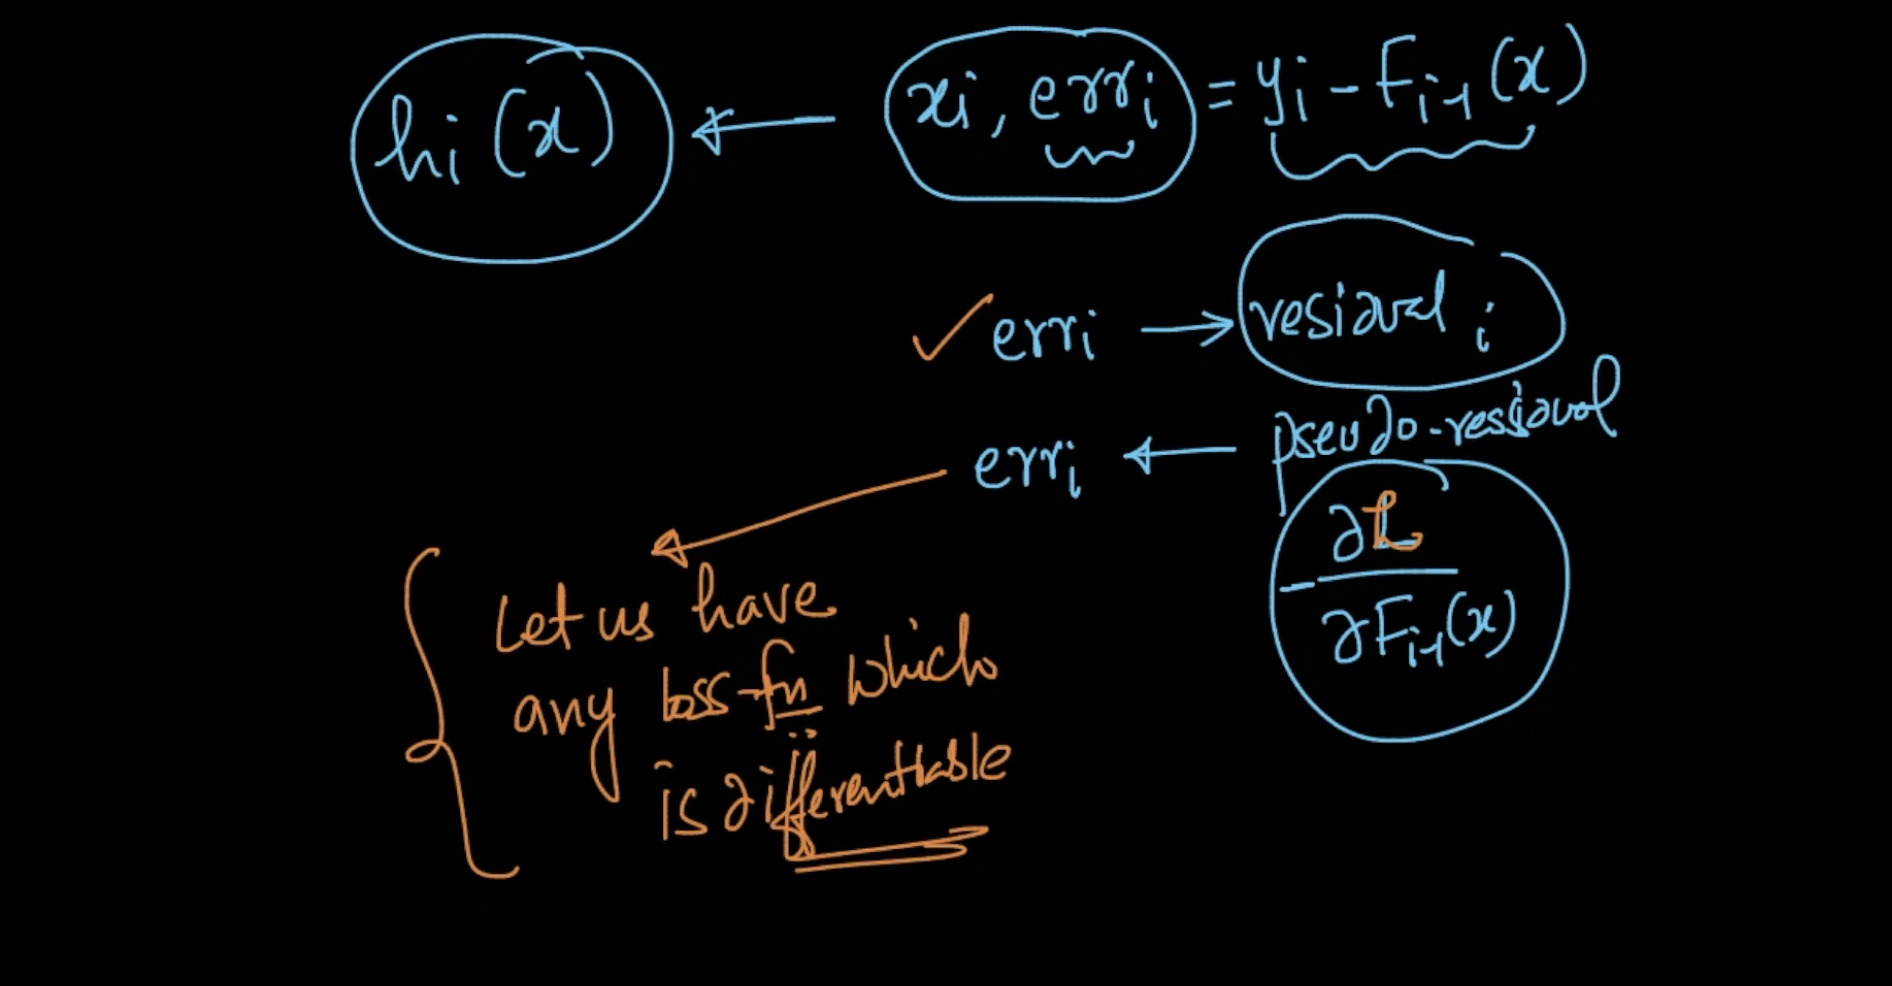 hi(x) ← xi, erri = yi - Fi-1(x)
✓ erri → residual i
erri ← pseudo-residual
- ∂L / ∂Fi-1(x)
Let us have
any loss-fn which
is differentiable